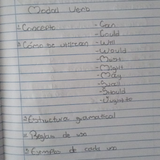 Modal Verb
Concepto
- Can
- Could
Cómo se utilizan
- Will
- Would
- Must
- Might
- May
- Shall
- Should
Estructura gramatical
Reglas de uso
Ejemplos de cada uno